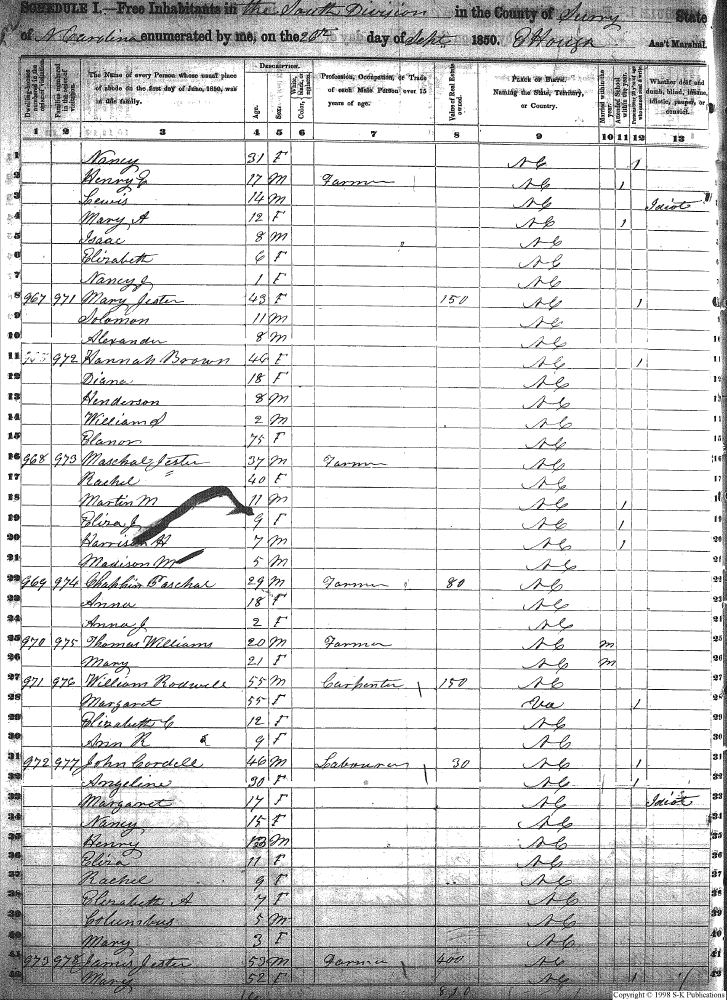 SCHEDULE I.—Free Inhabitants in the South Division in the County of Surry State
of N Carolina enumerated by me, on the 20th day of Sept 1850. Ass't Marshal.
DESCRIPTION.
The Name of every Person whose usual place of abode on the first day of June, 1850, was in this family.
Age.
Sex.
Profession, Occupation, or Trade of each Male Person over 15 years of age.
Value of Real Estate owned.
PLACE OF BIRTH. Naming the State, Territory, or Country.
Whether deaf and dumb, blind, insane, idiotic, pauper, or convict.
1 2 3 4 5 6 7 8 9 10 11 12 13
1 Nancy 31 F NC 1
2 Henry C 17 M Farmer NC 1
3 Lewis 14 M NC Idiot
4 Mary A 12 F NC 1
5 Isaac 8 M NC
6 Elizabeth 6 F NC
7 Nancy J 1 F NC
8 967 971 Mary Jester 43 F 150 NC 1
9 Solomon 11 M NC
10 Alexander 8 M NC
11 972 Hannah Brown 46 F NC 1
12 Diana 18 F NC
13 Henderson 8 M NC
14 William 2 M NC
15 Elanor 75 F NC
16 968 973 Maschal Jester 37 M Farmer NC
17 Rachel " 40 F NC
18 Martin M 11 M NC 1
19 Eliza J 9 F NC 1
20 Harrison H 7 M NC 1
21 Madison M 5 M NC
22 969 974 Paschal 29 M Farmer 80 NC
23 Anna 18 F NC
24 Anna J 2 F NC
25 970 975 Thomas Williams 20 M Farmer NC M
26 Mary 21 F NC M
27 971 976 William Rodwell 55 M Carpenter 150 NC
28 Margaret 55 F Va 1
29 Elizabeth C 12 F NC
30 Ann R 9 F NC
31 972 977 John Cordell 46 M Labourer 30 NC 1
32 Angeline 30 F NC 1
33 Margaret 17 F NC Idiot
34 Nancy 15 F NC
35 Henry 13 M NC
36 Eliza 11 F NC
37 Rachel 9 F NC
38 Elizabeth A 7 F NC
39 Columbus 5 M NC
40 Mary 3 F NC
41 973 978 James Jester 53 M Farmer 400 NC
42 Mary 52 F NC 1
Copyright © 1998 S-K Publications